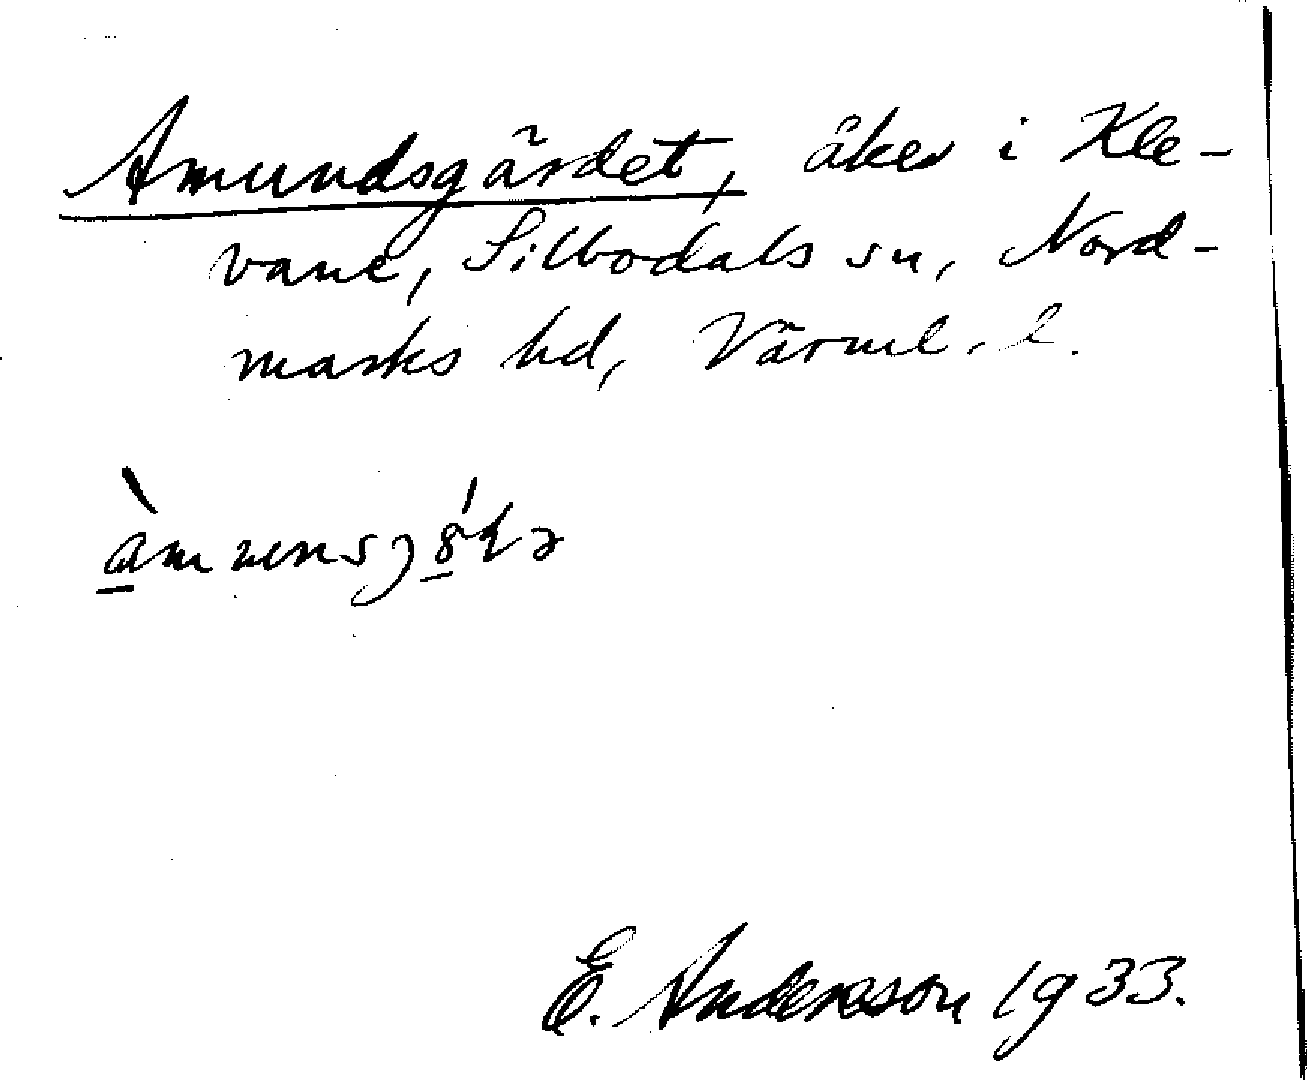 Amundsgärdet, åker i Kle-
vane, Silbodals sn, Nord-
marks hd, Värml. l.
E. Andersson 1933.